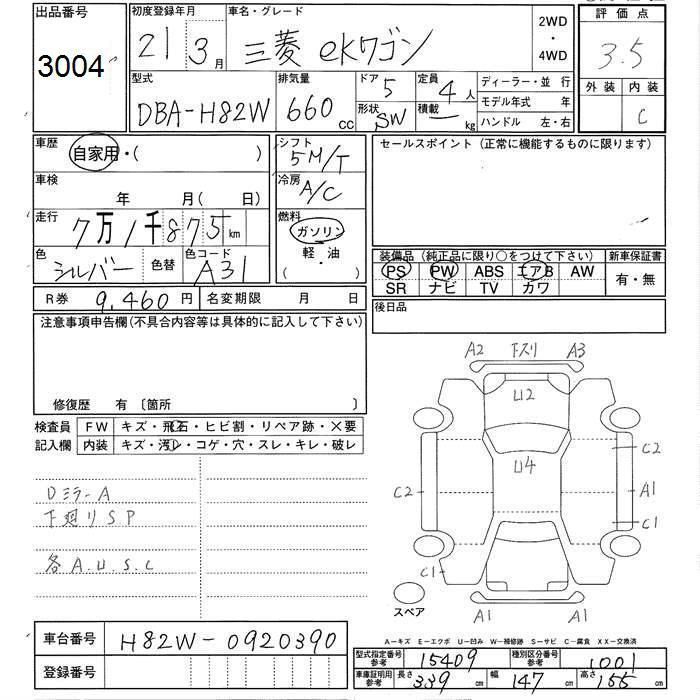 出品番号
3004
初度登録年月
21 3月
車名・グレード
三菱 ekワゴン
2WD
・
4WD
評価点
3.5
型式
DBA-H82W
排気量
660 cc
ドア 5
形状 SW
定員 4人
積載 kg
ディーラー・並行
モデル年式 年
ハンドル 左・右
外装 内装
C
車歴
自家用・( )
シフト
5M/T
セールスポイント (正常に機能するものに限ります)
車検
年 月( 日)
冷房
A/C
走行
7万1千875km
燃料
ガソリン
軽・油
( )
色
シルバー
色替
色コード
A31
装備品 (純正品に限り○をつけて下さい)
新車保証書
PS PW ABS エアB AW
SR ナビ TV カワ
有・無
R券 9,460円
名変期限 月 日
後日品
注意事項申告欄(不具合内容等は具体的に記入して下さい)
修復歴 有 〔箇所 〕
検査員
記入欄
FW キズ・飛石・ヒビ割・リペア跡・×要
内装 キズ・汚レ・コゲ・穴・スレ・キレ・破レ
Dミラー A
下廻りSP
各A.U.S.C
A2 下スリ A3
U2
U4
C2
C2
A1
C1
C1
スペア
A1 A1
車台番号 H82W-0920390
登録番号
A-キズ E-エクボ U-凹み W-補修跡 S-サビ C-腐食 XX-交換済
型式指定番号
参考
15409
種別区分番号
参考
1001
車庫証明用
参考
長さ 339cm
幅 147cm
高さ 155cm